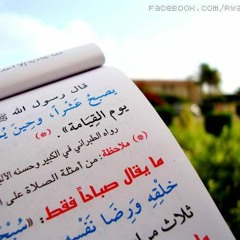 FACEBOOK.COM/RWA
قال رسول الله ﷺ
يصبح عشراً، وحين
يوم القيامة».
رواه الطبراني في الكبير وحسنه
(*) ملاحظة: من أمثلة الصلاة على
ما يقال صباحاً فقط:
خلقه ورضا نفس
ثلاث